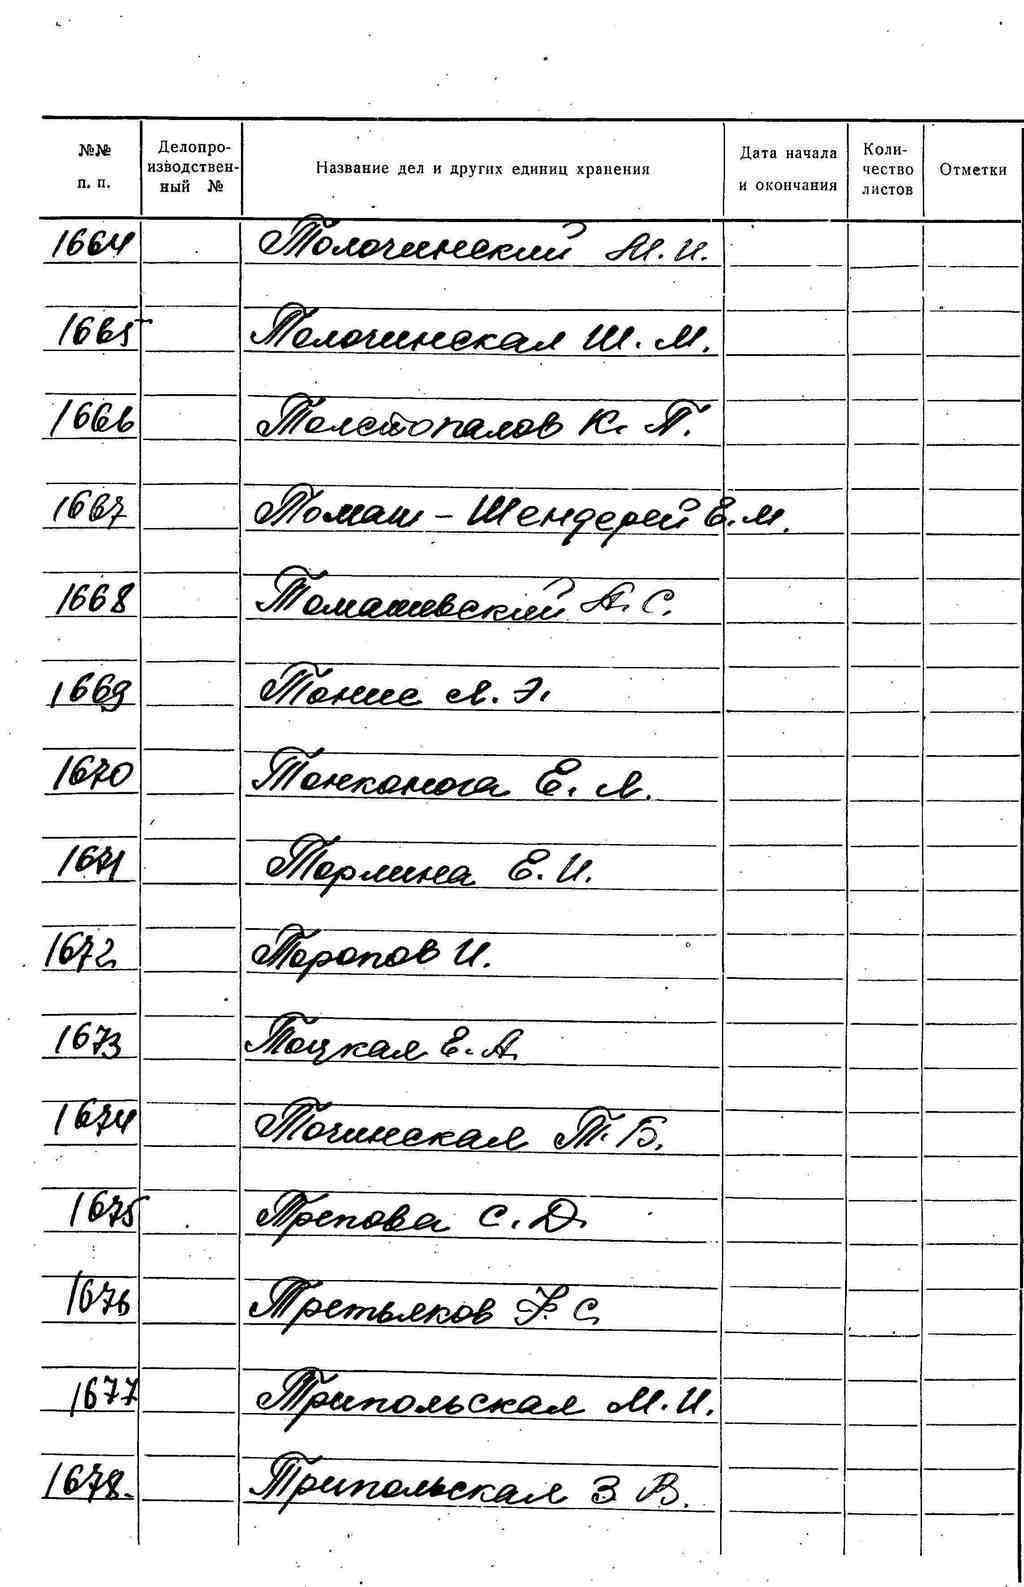 №№ п. п. Делопроизводственный № Название дел и других единиц хранения Дата начала и окончания Количество листов Отметки
1664 Толочинский М. И.
1665 Толочинская Ш. М.
1666 Толстопалов К. П.
1667 Томаш - Шендерей Е. М.
1668 Томашевский А. С.
1669 Тонис А. Э.
1670 Тонконога Е. А.
1671 Тормина Е. И.
1672 Торопов И.
1673 Тоцкая Е. А.
1674 Точинская Т. Б.
1675 Трепова С. Д.
1676 Третьяков С.
1677 Трипольская М. И.
1678. Трипольская З В.